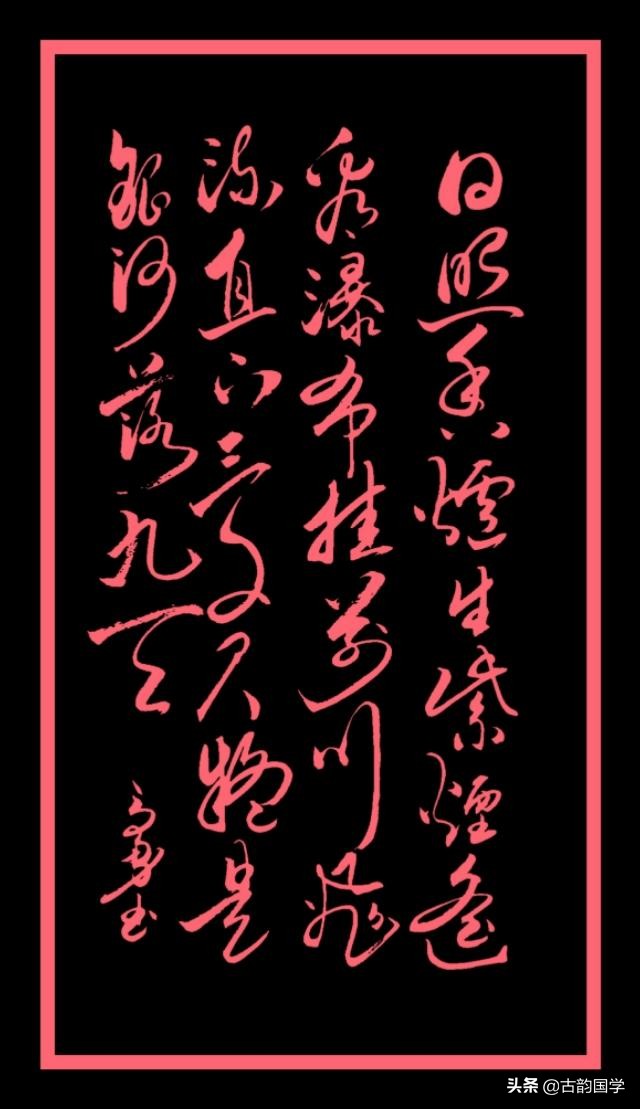 日照香爐生紫煙遙
看瀑布挂前川飛
流直下三千尺疑是
銀河落九天
书
头条 @古韵国学